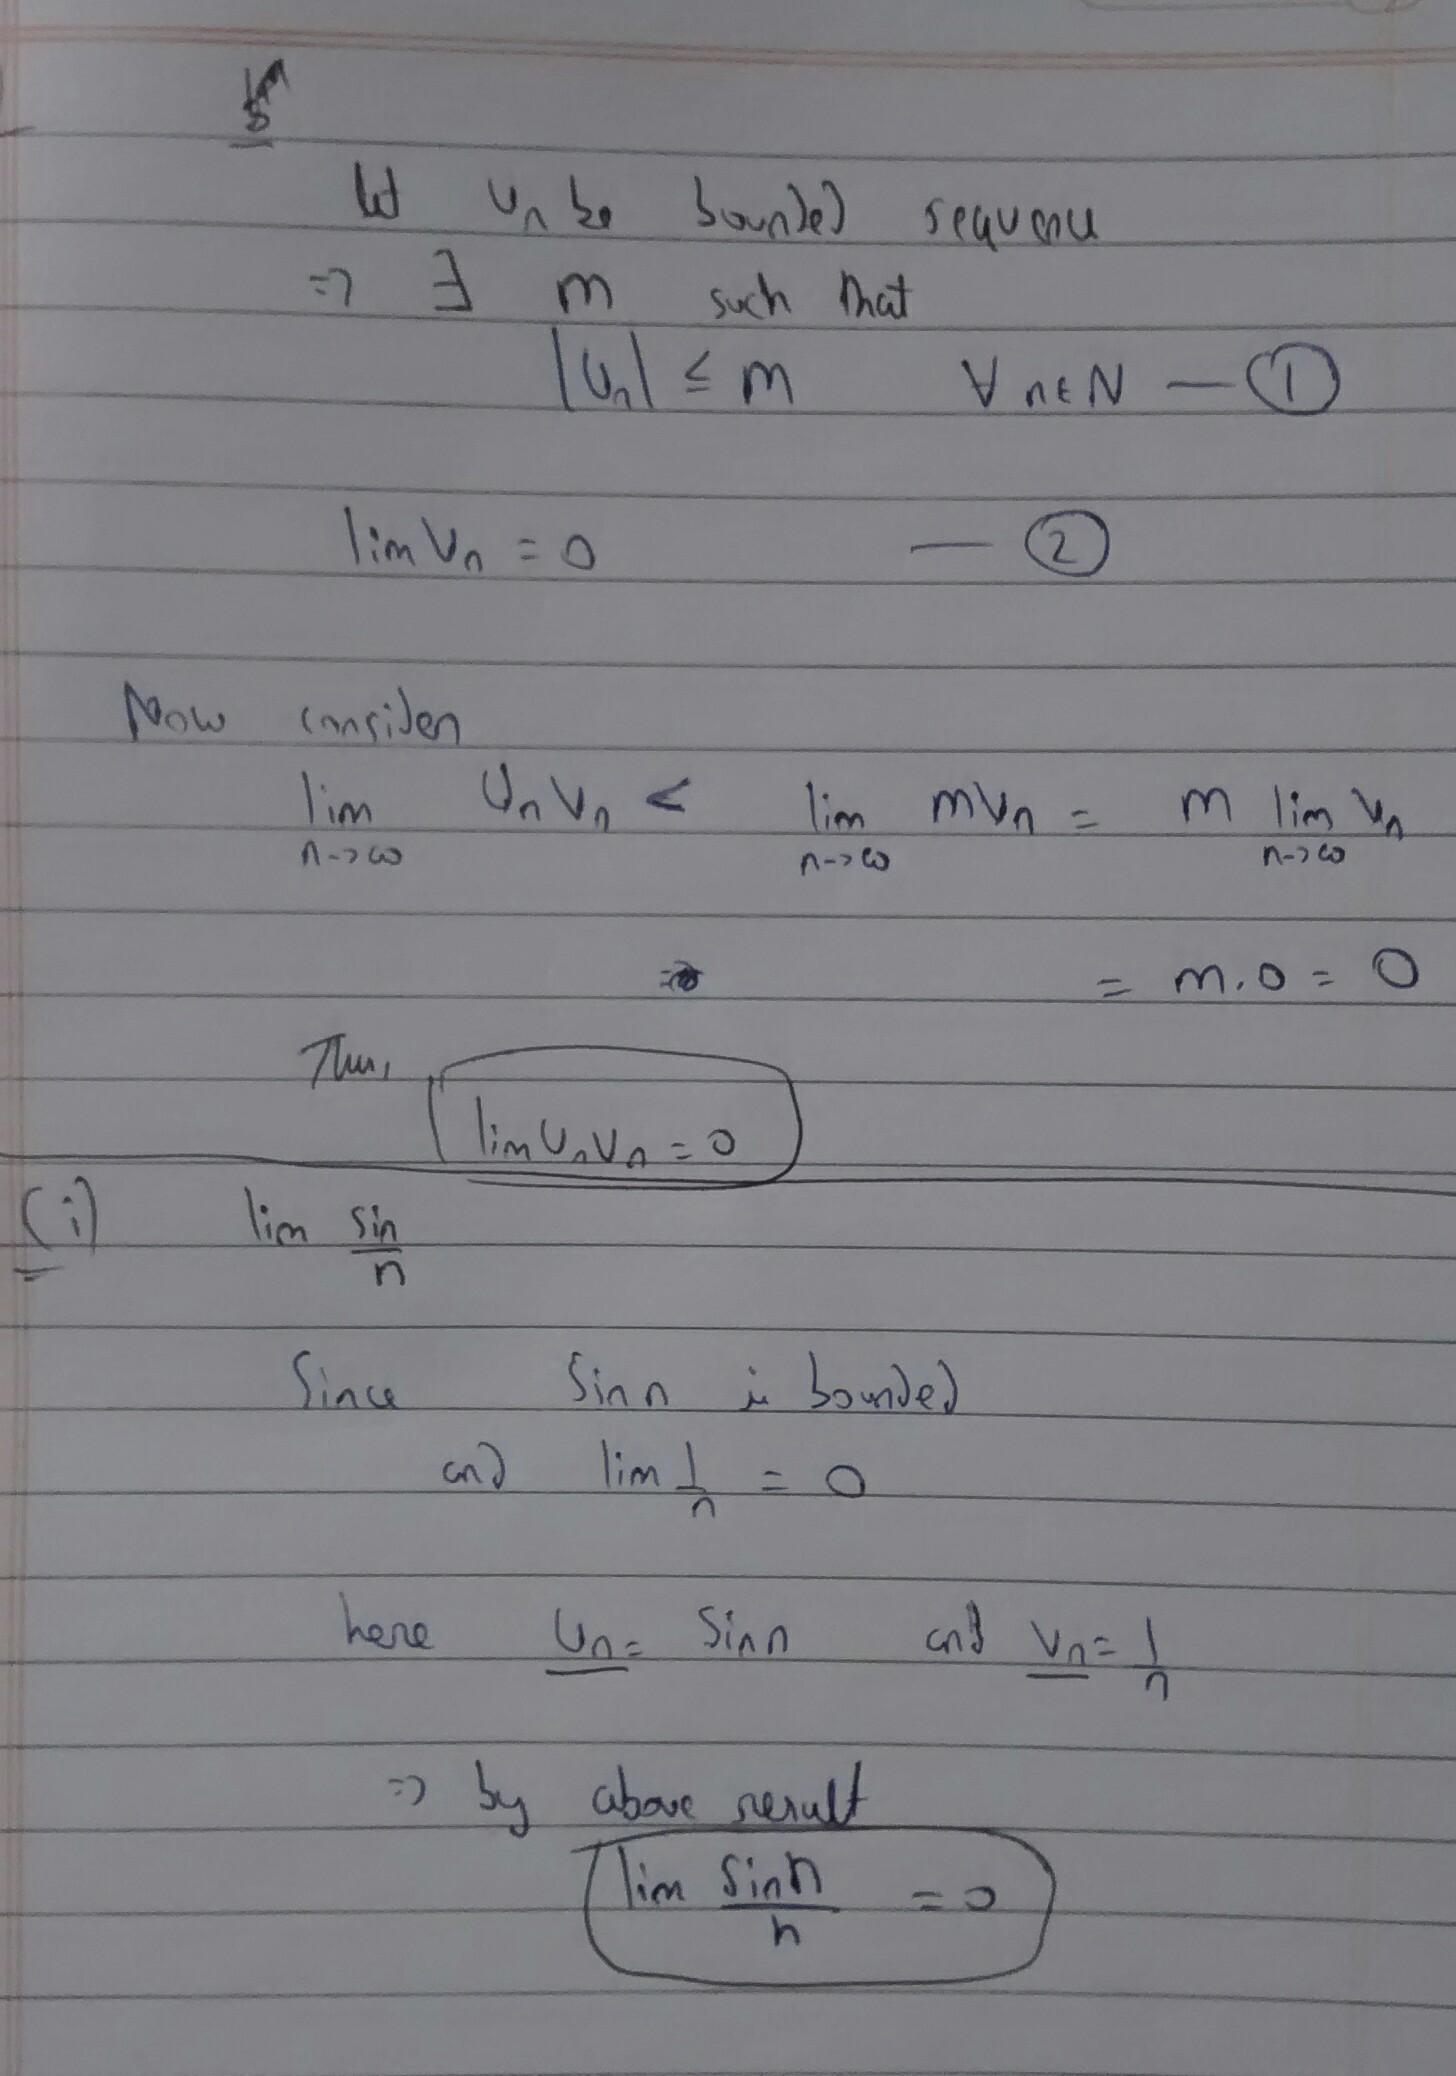 let Un be bounded sequence
=> ∃ m such that
|Un| ≤ m ∀ n ∈ N — ①
lim Vn = 0 — ②
Now consider
lim n->∞ Un Vn < lim n->∞ m Vn = m lim n->∞ Vn
= m.0 = 0
Thus,
lim Un Vn = 0
(i) lim sin/n
Since Sin n is bounded
and lim 1/n = 0
here Un = Sin n and Vn = 1/n
=> by above result
lim Sin n/n = 0